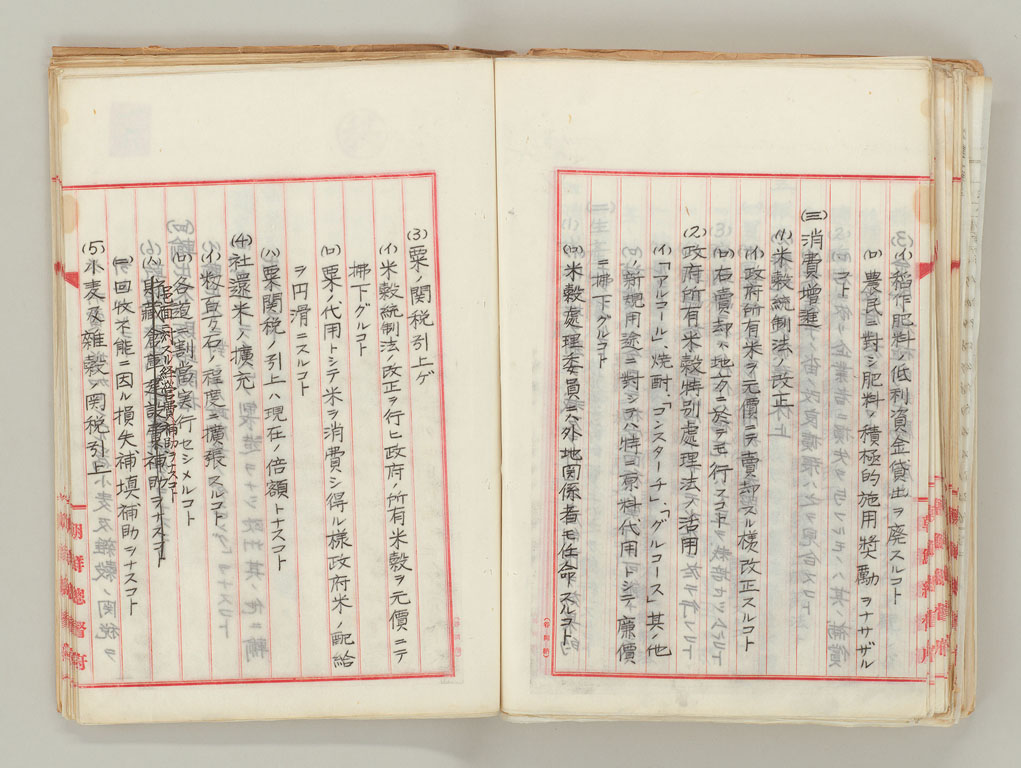 (イ)稻作肥料ノ低利資金貸出ヲ廃スルコト
(ロ)農民ニ對シ肥料ノ積極的施用奬勵ヲナサザル
コト
(三)消費増進
(1)米穀統制法ノ改正
(イ)政府所有米ヲ元價ニテ賣却スル様改正スルコト
(ロ)右賣却ハ地方ニ於テモ行フコト
(2)政府所有米穀特別處理法ノ活用
(イ)「アルコール」、焼酎、「コンスターチ」、「グルコース」其ノ他
新規用途ニ對シテハ特ニ原料代用トシテ廉價
ニ拂下グルコト
(ロ)米穀處理委員ニハ外地関係者モ任命スルコト
(3)粟ノ関税引上ゲ
(イ)米穀統制法ノ改正ヲ行ヒ政府ノ所有米穀ヲ元價ニテ
拂下グルコト
(ロ)粟ノ代用トシテ米ヲ消費シ得ル様政府米ノ配給
ヲ円滑ニスルコト
(ハ)粟関税ノ引上ハ現在ノ倍額トナスコト
(4)社還米ノ擴充
(イ)數百万石ノ程度ニ擴張スルコト
(ロ)各道ニ割當実行セシメルコト
(ハ)貯藏倉庫建設費補助ヲナスコト
(ニ)回收不能ニ因ル損失補填補助ヲナスコト
(5)小麦及雜穀ノ関税引上
朝鮮總督府